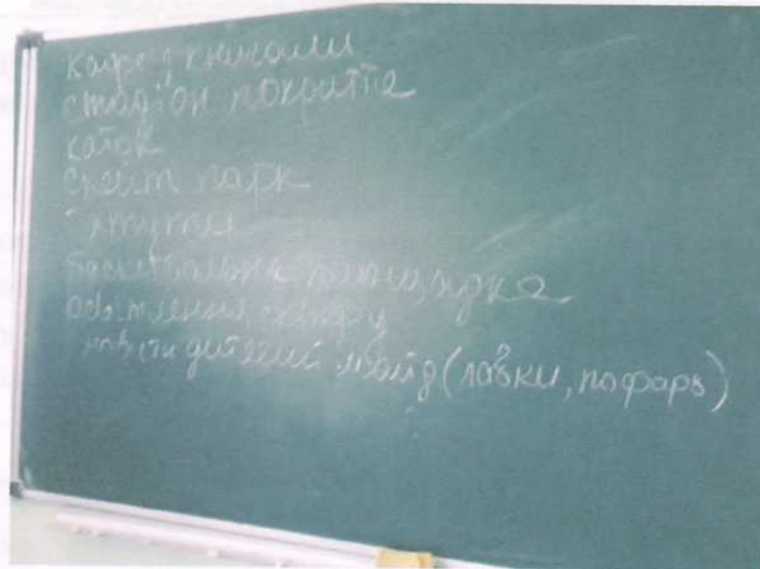 кафе з книгами
стадіон покриття
каток
скейт парк
батути
баскетбольна площадка
освітлення скверу
дитячий майд (лавки, пофарб)